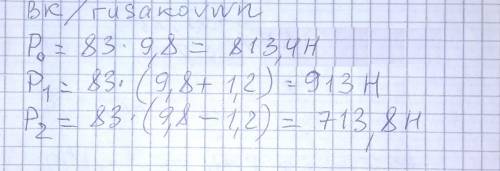 вк/rusakovvn
P₀ = 83 · 9,8 = 813,4 Н
P₁ = 83 · (9,8 + 1,2) = 913 Н
P₂ = 83 · (9,8 − 1,2) = 713,8 Н